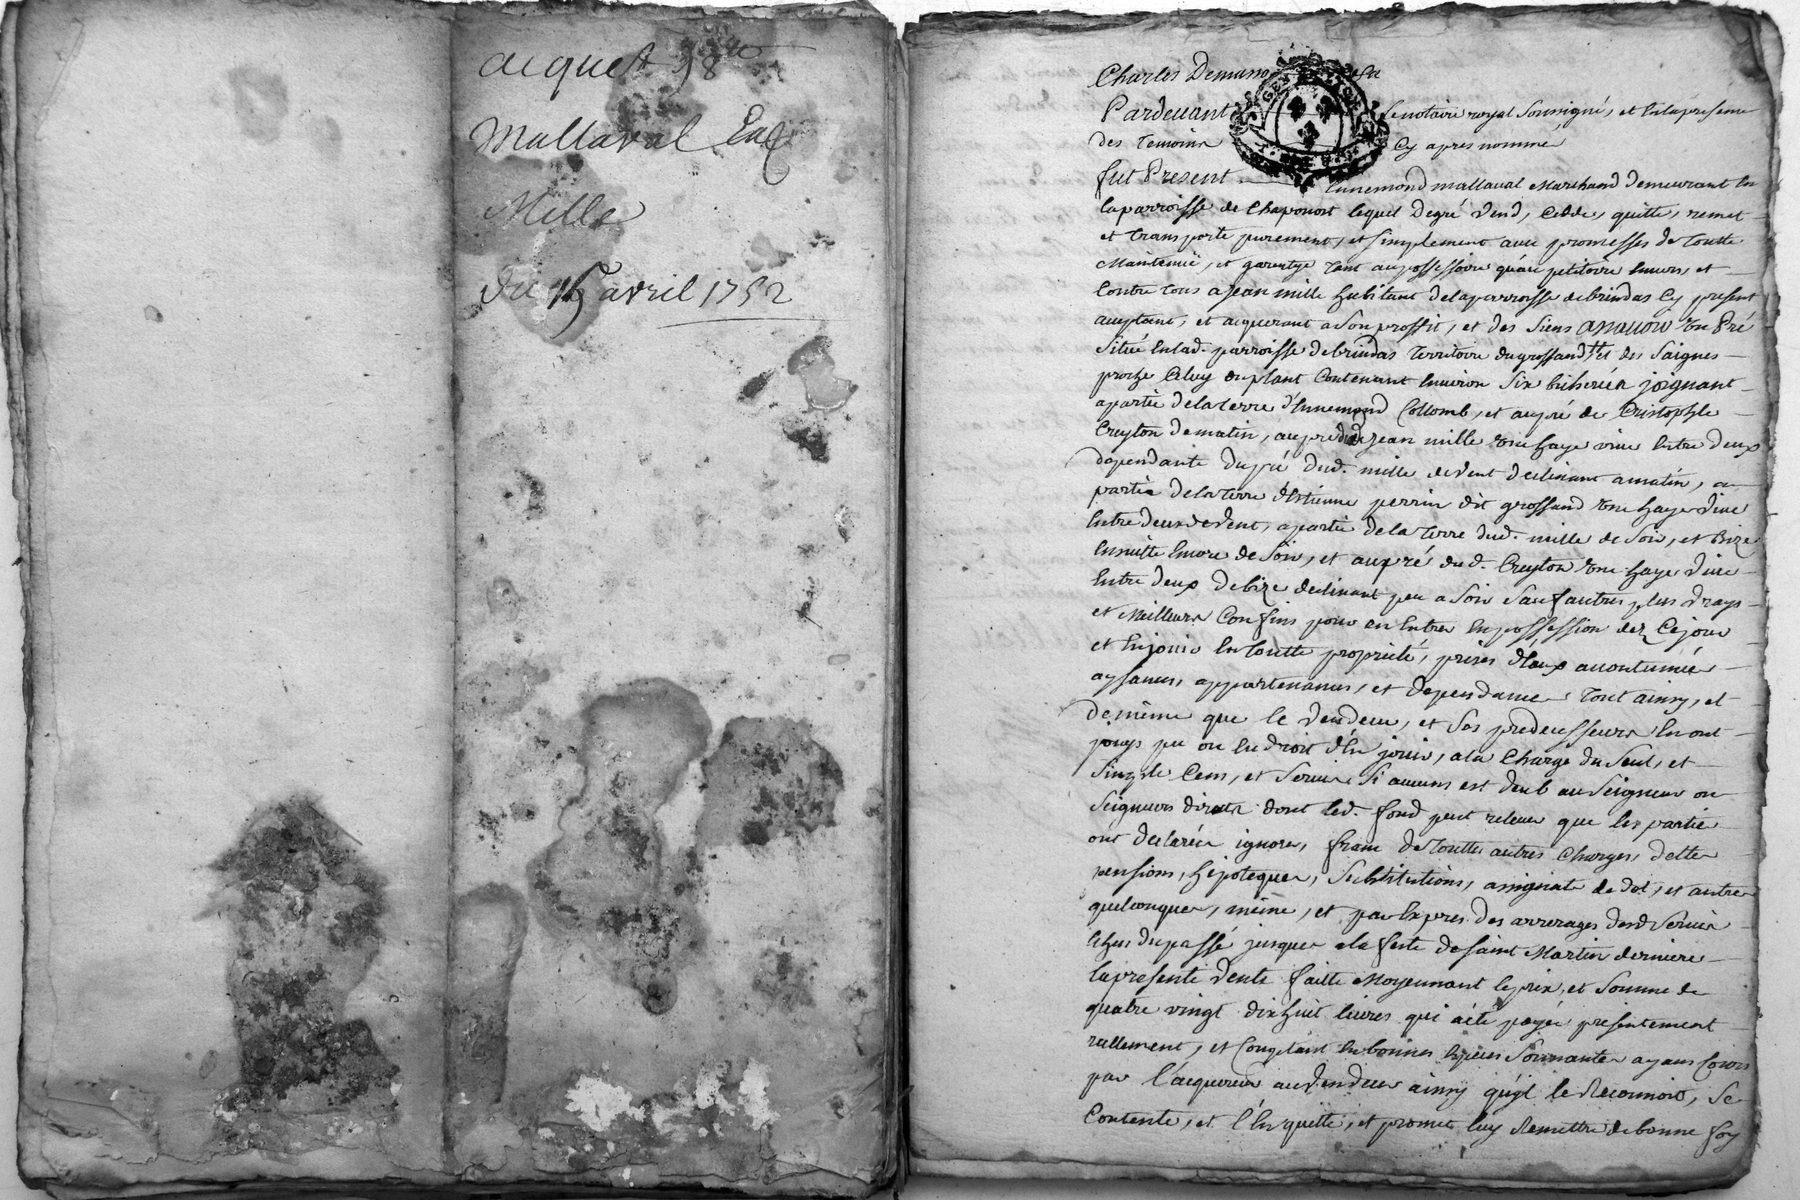 acquet 98
Mallaval Enq
Mille
Du 15 avril 1752
Charles Demasso
Pardevant le notaire royal soussigné, et en la presence
des temoins cy apres nommé
fut Present Ennemond mallaval Marchand demeurant en
la parroisse de Chaponost lequel Degré vend, cedde, quitte, remet
et transporte purement, et simplement avec promesses de toutte
Maintenüe, et garentye tant au possessoire qu'au petitoire envers, et
contre tous a Jean mille habitant de la parroisse de brindas cy present
acceptant, et acquerant a son proffit, et des siens assavoir un Pré
situé en lad. parroisse de brindas territoire du grossand et des saignes
proche celuy du plant contenant environ six bicherées joignant
a partie de la terre d'Ennemond Collomb, et au pré de Cristophle
Creyton de matin, au pré dud. Jean mille une haye vive entre deux
dependante du pré dud. mille de vent declinant a matin, a
partie de la terre d'Estienne perrin dit grossand une haye vive
entre deux de vent, a partie de la terre dud. mille de soir, et bize
ensuitte encore de soir, et au pré dud. Creyton une haye vive
entre deux de bize declinant peu a soir sauf autres plus vrays
et Meilleurs Confins pour en entrer en possession dez ce jour
et en jouir en toutte proprieté, prises d'eaux accoutumée
aysances, appartenances, et dependances tout ainsy, et
de même que le vendeur, et ses predecesseurs en ont
jouys pu ou eu droit d'en jouir, a la charge du seul, et
simple Cens, et servis si aucuns est deub au seigneur ou
seigneurs directs dont led. fond peut relever que les partie
ont declarées ignorer, franc de touttes autres charges, dettes
pensions, hipoteques, substitutions, assignats de dot, et autres
quelconques, même, et par expres des arrerages desd servis
echus du passé jusques a la feste de saint Martin derniere
la presente vente faitte Moyennant le prix, et somme de
quatre vingt dix huit livres qui a été payée presentement
reellement, et comptant en bonnes especes sonnantes ayans cours
par l'acquereur au vendeur ainsy qu'il le Reconnoit, se
contente, et l'en quitte, et promet luy Remettre de bonne foy